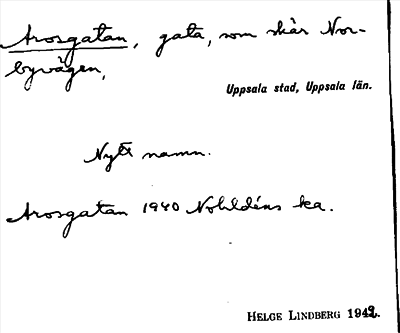 Arosgatan, gata, som skär Nor-
byvägen,
Uppsala stad, Uppsala län.
Nytt namn.
Arosgatan 1940 ka.
HELGE LINDBERG